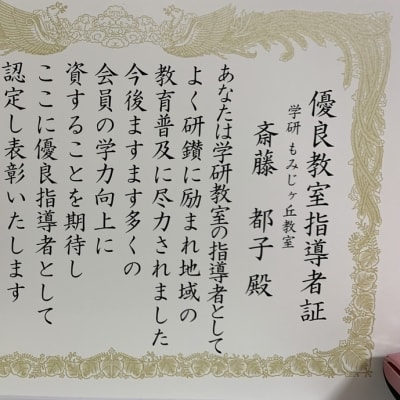 優良教室指導者証
学研 もみじヶ丘教室
斎藤 都子 殿
あなたは学研教室の指導者として
よく研鑽に励まれ地域の
教育普及に尽力されました
今後ますます多くの
会員の学力向上に
資することを期待し
ここに優良指導者として
認定し表彰いたします